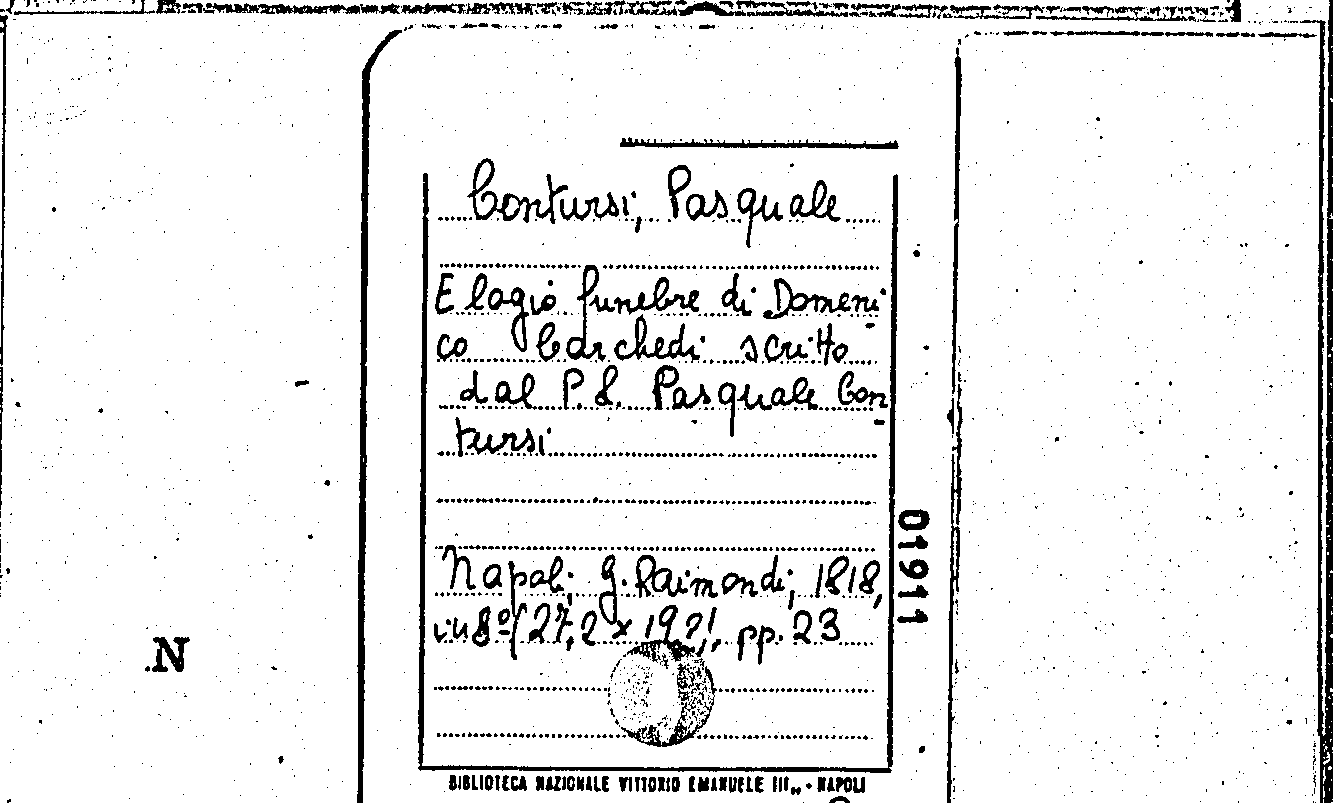 Contursi, Pasquale
Elogio funebre di Domeni-
co Barchedi scritto
dal P. S. Pasquale Con-
tursi
Napoli, G. Raimondi, 1818,
in 8º (27,2 x 19,2), pp. 23
01911
N
BIBLIOTECA NAZIONALE VITTORIO EMANUELE III„ - NAPOLI